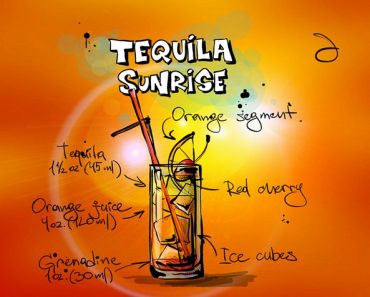 TEQUILA
SUNRISE
Orange segment.
Tequila
1½ oz (45 ml)
Red cherry
Orange juice
4 oz. (120 ml)
Ice cubes
Grenadine
1 oz. (30 ml)